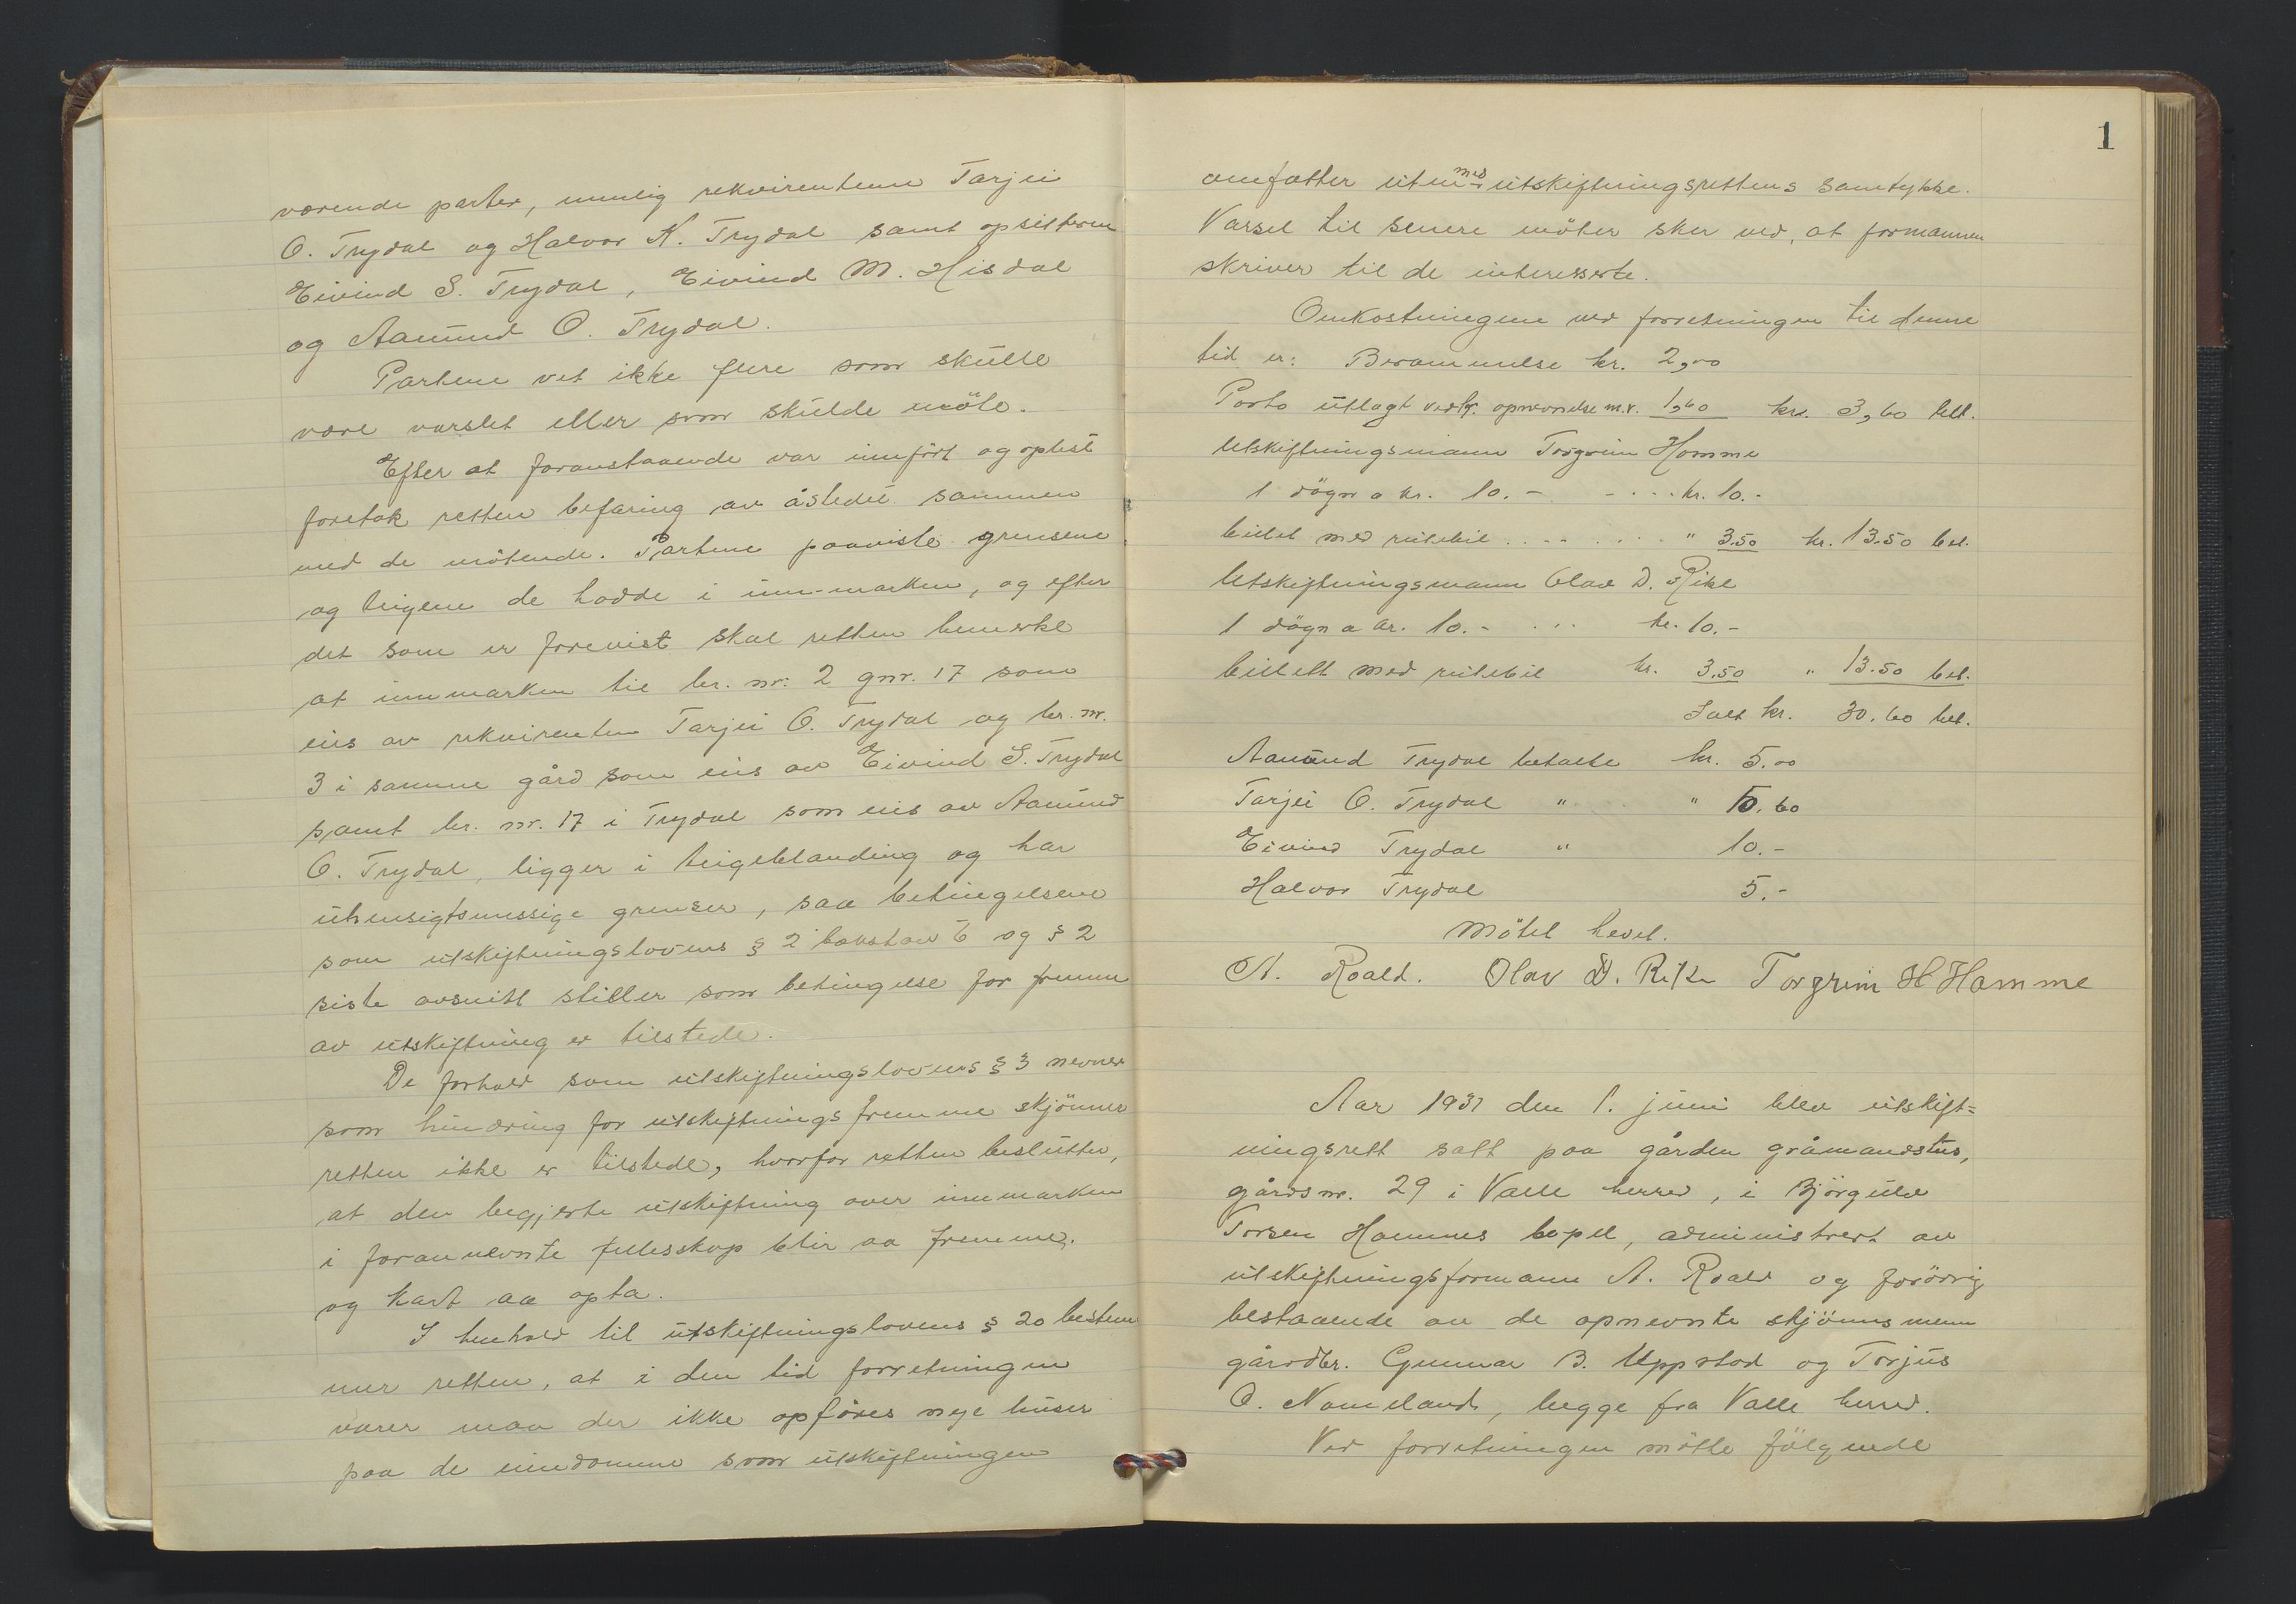 værende parter, nemlig rekvirentene Tarjei
O. Trydal og Halvor K. Trydal samt opsitterne
Eivind S. Trydal, Eivind M. Hisdal
og Aanund O. Trydal.
Partene vet ikke flere som skulle
være varslet eller som skulde möte.
Efter at foranstaaende var innfört og oplest
foretok retten befaring av åstedet sammen
med de mötende. Partene paaviste grensene
og teigene de hadde i inn-marken, og efter
det som er forevist skal retten bemerke
at innmarken til br. nr. 2 gnr. 17 som
eies av rekvirenten Tarjei O. Trydal og br. nr.
3 i samme gård som eies av Eivind S. Trydal
samt br. nr. 17 i Trydal som eies av Aanund
O. Trydal, ligger i teigeblanding og har
uhensigtsmessige grenser, saa betingelsene
som utskiftningslovens § 2 bokstav b og § 2
siste avsnitt stiller som betingelse for fremme
av utskiftning er tilstede.
De forhold som utskiftningslovens § 3 nevner
som hindring for utskiftnings fremme skjönner
retten ikke er tilstede, hvorfor retten beslutter,
at den begjerte utskiftning over innmarken
i forannevnte fellesskap blir aa fremme,
og kart aa opta.
I henhold til utskiftningslovens § 20 bestem
mer retten, at i den tid forretningen
varer maa der ikke opföres nye huser
paa de eiendomme som utskiftningen
1
omfatter uten med utskiftningsrettens samtykke.
Varsel til senere möter sker ved, at formannen
skriver til de interesserte.
Omkostningene ved forretningen til denne
tid er: Berammelse kr. 2,00
Porto utlagt vedk. opnevnelse m.v. 1,60 kr. 3,60 bet.
Utskiftningsmann Torgrim Homme
1 dögn a kr. 10.- - . . . kr. 10.-
billet med rutebil . . . . . . . " 3.50 kr. 13.50 bet.
Utskiftningsmann Olav D. Rike
1 dögn a kr. 10.- . . . kr. 10.-
billett med rutebil kr. 3.50 " 13.50 bet.
Ialt kr. 30.60 bet.
Aanund Trydal betalte kr. 5.00
Tarjei O. Trydal " " 10.60
Eivind Trydal " 10.-
Halvor Trydal 5.-
Mötet hevet.
A. Roald. Olav D. Rike Torgrim H Homme
Aar 1931 den 1. juni blev utskift=
ningsrett satt paa gården gråmandstus,
gårdsnr. 29 i Valle herred, i Björgulv
Torsen Hommes bopel, administrert av
utskiftningsformann A. Roald og forövrig
bestaaende av de opnevnte skjönnsmenn
gårdbr. Gunnar B. Uppstad og Torjus
O. Nomeland, begge fra Valle herred.
Ved forretningen mötte fölgende